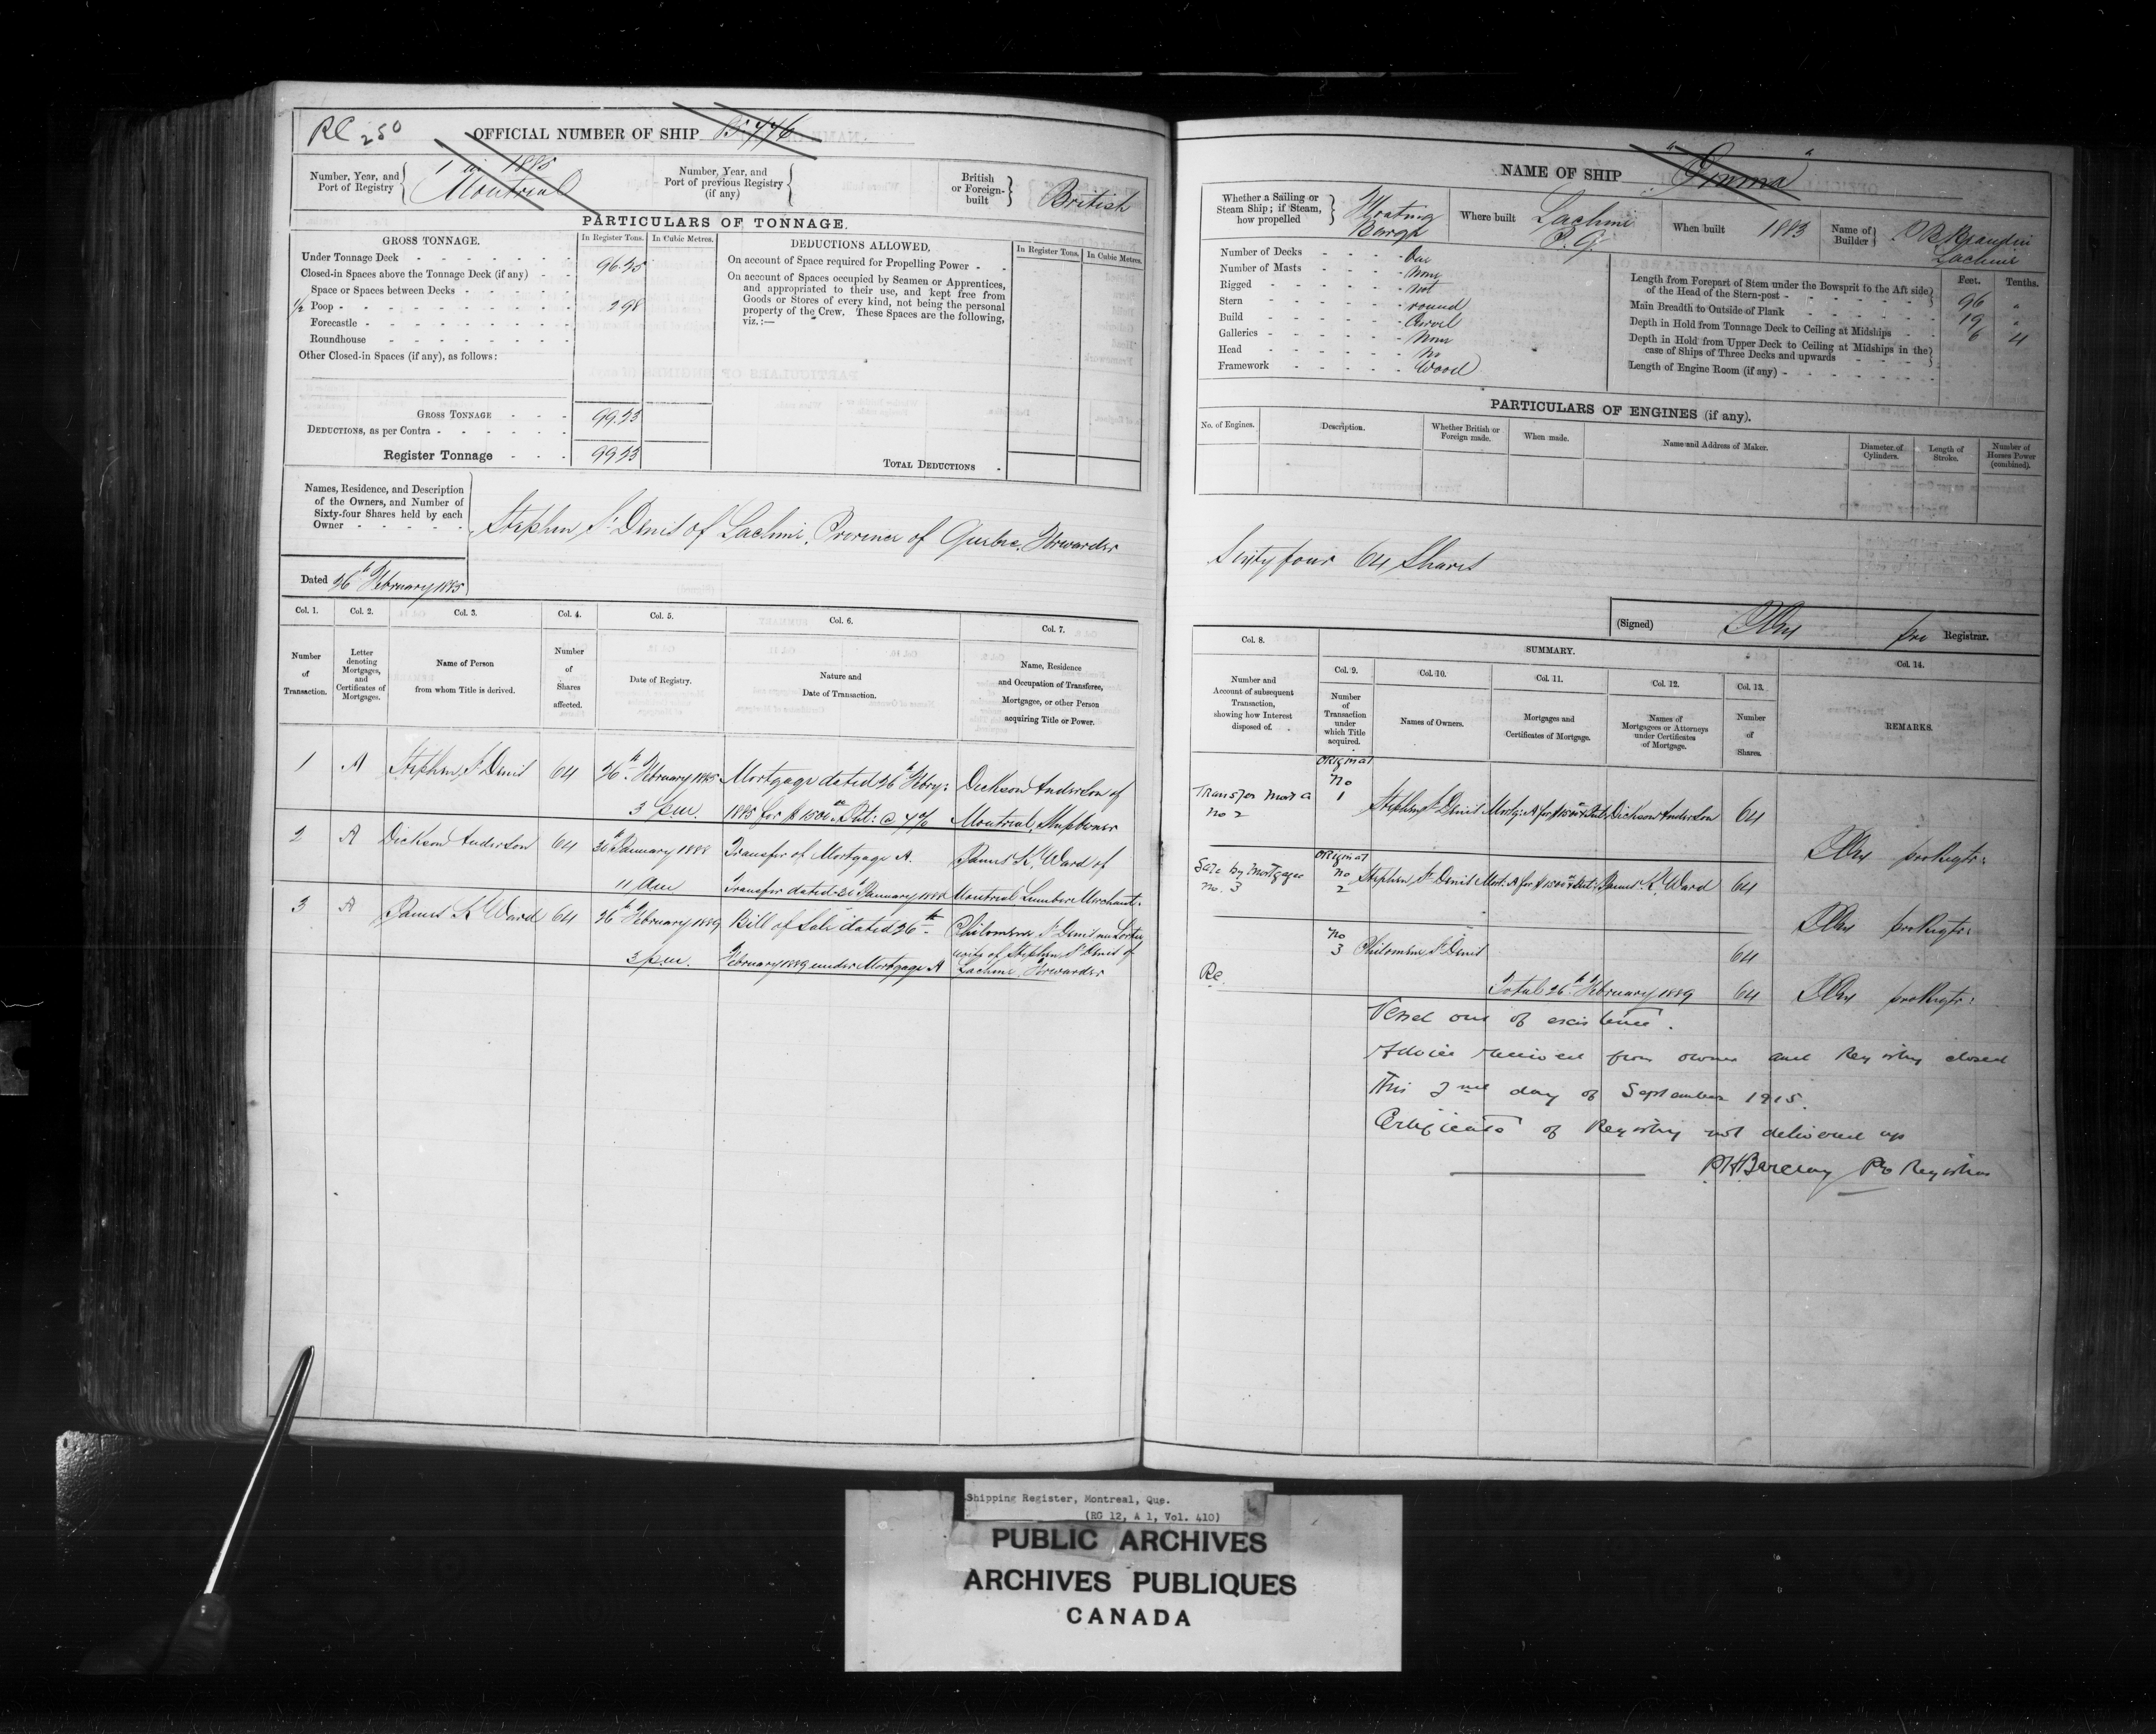 RC 250
OFFICIAL NUMBER OF SHIP
Number, Year, and Port of Registry
1 in 1885
Montreal
Number, Year, and Port of previous Registry (if any)
British or Foreign-built
British
PARTICULARS OF TONNAGE.
GROSS TONNAGE.
In Register Tons.
In Cubic Metres.
DEDUCTIONS ALLOWED.
In Register Tons.
In Cubic Metres.
Under Tonnage Deck
Closed-in Spaces above the Tonnage Deck (if any)
Space or Spaces between Decks
½ Poop 2.98
Forecastle
Roundhouse
Other Closed-in Spaces (if any), as follows:
On account of Space required for Propelling Power
On account of Spaces occupied by Seamen or Apprentices,
and appropriated to their use, and kept free from
Goods or Stores of every kind, not being the personal
property of the Crew. These Spaces are the following,
viz.:—
GROSS TONNAGE
DEDUCTIONS, as per Contra
Register Tonnage
TOTAL DEDUCTIONS
Names, Residence, and Description
of the Owners, and Number of
Sixty-four Shares held by each
Owner
Stephen St Denis of Lachine, Province of Quebec, Forwarder
Dated 26th February 1885
Col. 1. Col. 2. Col. 3. Col. 4. Col. 5. Col. 6. Col. 7.
Number of Transaction.
Letter denoting Mortgages, and Certificates of Mortgages.
Name of Person from whom Title is derived.
Number of Shares affected.
Date of Registry.
Nature and Date of Transaction.
Name, Residence and Occupation of Transferee, Mortgagee, or other Person acquiring Title or Power.
1 A Stephen St Denis 64 26th February 1885 Mortgage dated 26th Febry: Dickson Anderson of
3 p.m. 1885 for $1500 Int: @ 7% Montreal, Shipowner
2 A Dickson Anderson 64 January 1888 Transfer of Mortgage A. James K. Ward of
11 am Transfer dated January 1888 Montreal Lumber Merchant.
3 A James K Ward 64 26th February 1889 Bill of Sale dated 26th Philomene St Denis
wife of Stephen St Denis of
3 p.m. February 1889 under Mortgage A Lachine, Forwarder
NAME OF SHIP "Emma"
Whether a Sailing or Steam Ship; if Steam, how propelled
Floating Barge
Where built
Lachine P.Q.
When built 1883
Name of Builder
Lachine
Number of Decks One
Number of Masts None
Rigged Not
Stern round
Build Carvel
Galleries None
Head No
Framework Wood
Feet. Tenths.
Length from Forepart of Stem under the Bowsprit to the Aft side of the Head of the Stern-post 96 "
Main Breadth to Outside of Plank 19 "
Depth in Hold from Tonnage Deck to Ceiling at Midships 6 4
Depth in Hold from Upper Deck to Ceiling at Midships in the case of Ships of Three Decks and upwards
Length of Engine Room (if any)
PARTICULARS OF ENGINES (if any).
No. of Engines.
Description.
Whether British or Foreign made.
When made.
Name and Address of Maker.
Diameter of Cylinders.
Length of Stroke.
Number of Horses Power (combined).
Sixty four 64 Shares
(Signed) pro Registrar.
Col. 8.
SUMMARY.
Col. 14.
Col. 9. Col. 10. Col. 11. Col. 12. Col. 13.
Number and Account of subsequent Transaction, showing how Interest disposed of.
Number of Transaction under which Title acquired.
Names of Owners.
Mortgages and Certificates of Mortgage.
Names of Mortgagees or Attorneys under Certificates of Mortgage.
Number of Shares.
REMARKS.
Original
Transfer Mort A No 2
No 1
Stephen St Denis Mortg: A for $1500 & Int: Dickson Anderson 64
pro Regtr:
Original
Sale by Mortgagee No. 3
No 2
Stephen St Denis Mort: A for $1500 & Int: James K. Ward 64
pro Regtr:
No 3 Philomene St Denis 64
Rc.
Total 26th February 1889 64 pro Regtr:
Vessel out of existence.
Advice received from owner and Registry closed
This 2nd day of September 1915.
Certificate of Registry not delivered up
Barclay Pro Registrar
Shipping Register, Montreal, Que.
(RG 12, A 1, Vol. 410)
PUBLIC ARCHIVES
ARCHIVES PUBLIQUES
CANADA